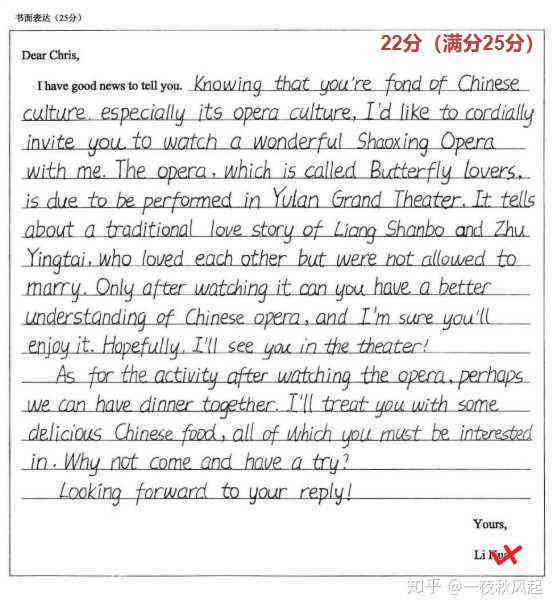 书面表达（25分）
22分（满分25分）
Dear Chris,
I have good news to tell you. Knowing that you're fond of Chinese
culture, especially its opera culture, I'd like to cordially
invite you to watch a wonderful Shaoxing Opera
with me. The opera, which is called Butterfly lovers,
is due to be performed in Yulan Grand Theater. It tells
about a traditional love story of Liang Shanbo and Zhu
Yingtai, who loved each other but were not allowed to
marry. Only after watching it can you have a better
understanding of Chinese opera, and I'm sure you'll
enjoy it. Hopefully, I'll see you in the theater!
As for the activity after watching the opera, perhaps
we can have dinner together. I'll treat you with some
delicious Chinese food, all of which you must be interested
in. Why not come and have a try?
Looking forward to your reply!
Yours,
Li
知乎 @一夜秋风起